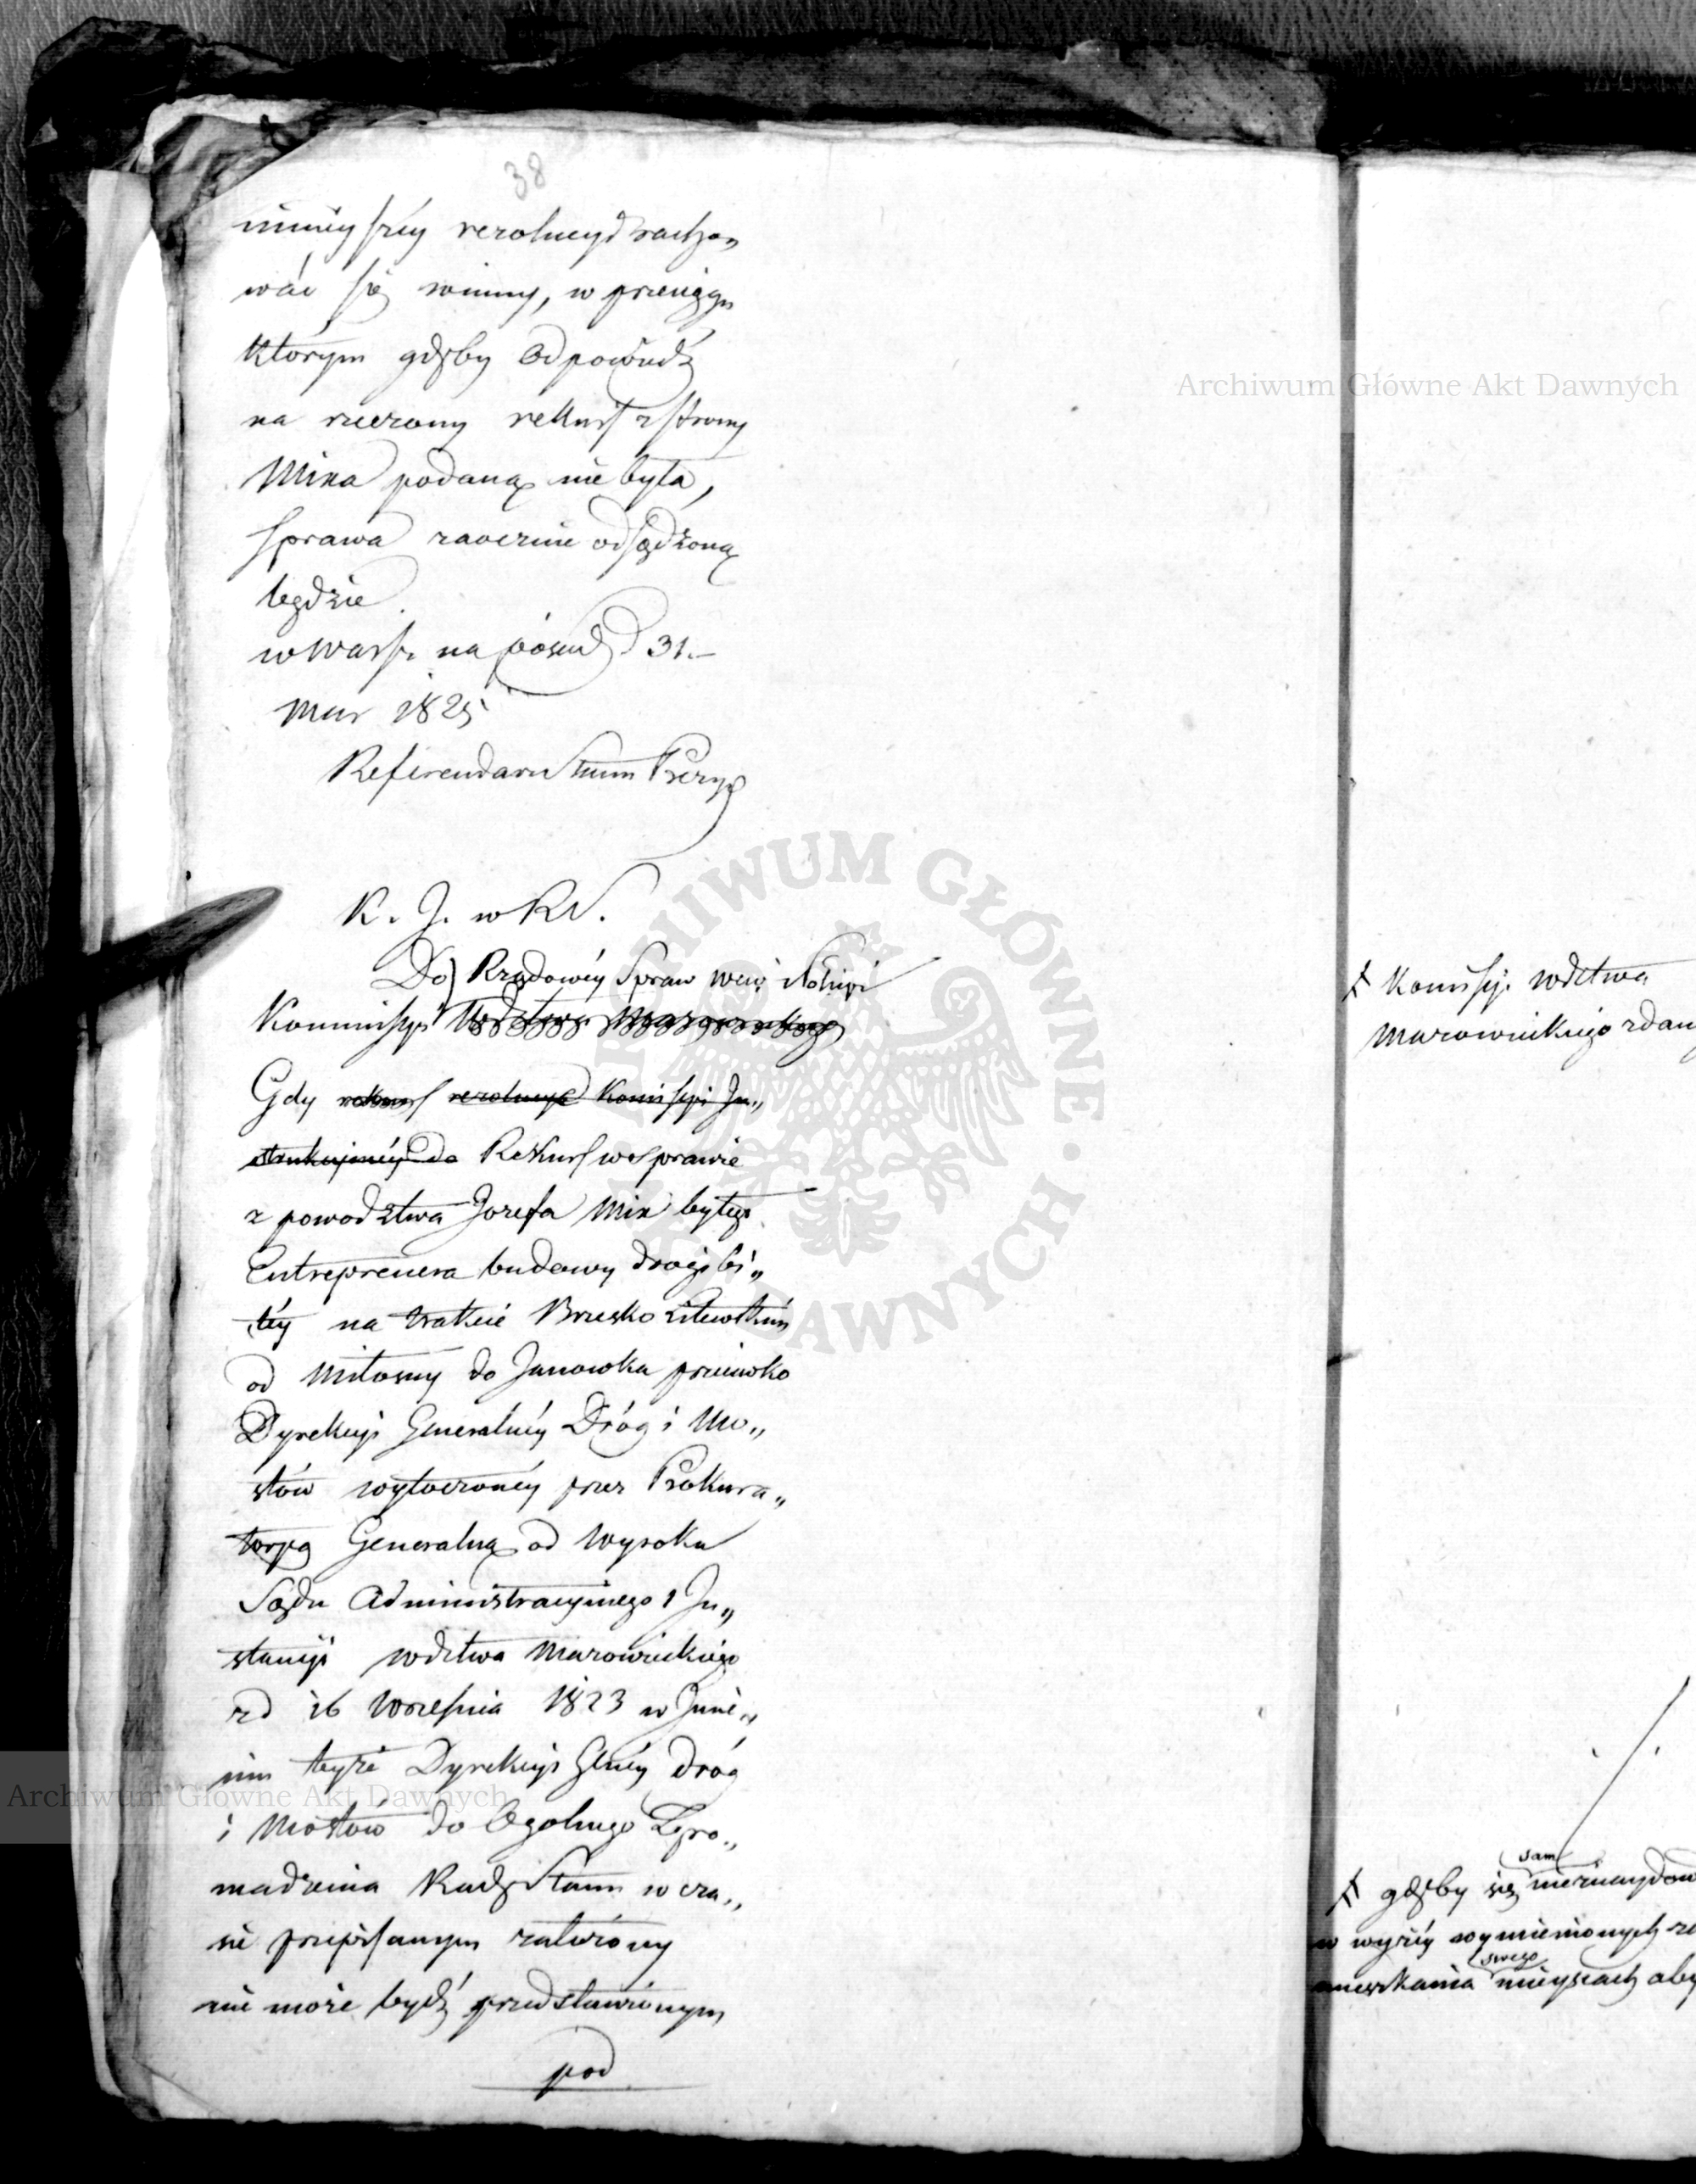 38
ninieyszéy rezolucyi zacho„
wać się winny, w przeciągu
którym gdyby Odpowiedź
na rzeczony rekurs z strony
Mina podaną nie była,
sprawa zaocznie odsądzoną
będzie.
w Warsz. na posiedz. d 31.
Mar 1825
Referendarz Stanu Prezyd.
K. J. w RS.
Do Rządowéy Spraw Wew. i Policyi
Kommissyi Wdztwa Mazowieckiego
Gdy rekurs rezolucye Komissyi In„
strukcyinéy do Rekurs w sprawie
z powodztwa Jozefa Min byłego
Entreprenera budowy drogi bi„
téy na trakcie Brzesko Litewskim
od Miłosny do Janowka przeciwko
Dyrekcyi Generalnéy Dróg i Mo„
stów wytoczonéy przez Prokura„
toryą Generalną od Wyroku
Sądu Administracyinego 1 In„
stancyi wdztwa Mazowieckiego
z d 16 Września 1823 w Imie„
niu teyże Dyrekcyi Glnéy Dróg
i Mostów do Ogolnego Zgro„
madzenia Rady Stanu w cza„
sie przepisanym założony
nie może bydź przedstawionym
pod
Komissyi Wdztwa
Mazowieckiego zdan
gdyby się sam nieznaydow
w wyżéy wymienionych
swego mieyscach aby
Archiwum Główne Akt Dawnych
Archiwum Główne Akt Dawnych
ARCHIWUM GŁÓWNE AKT DAWNYCH